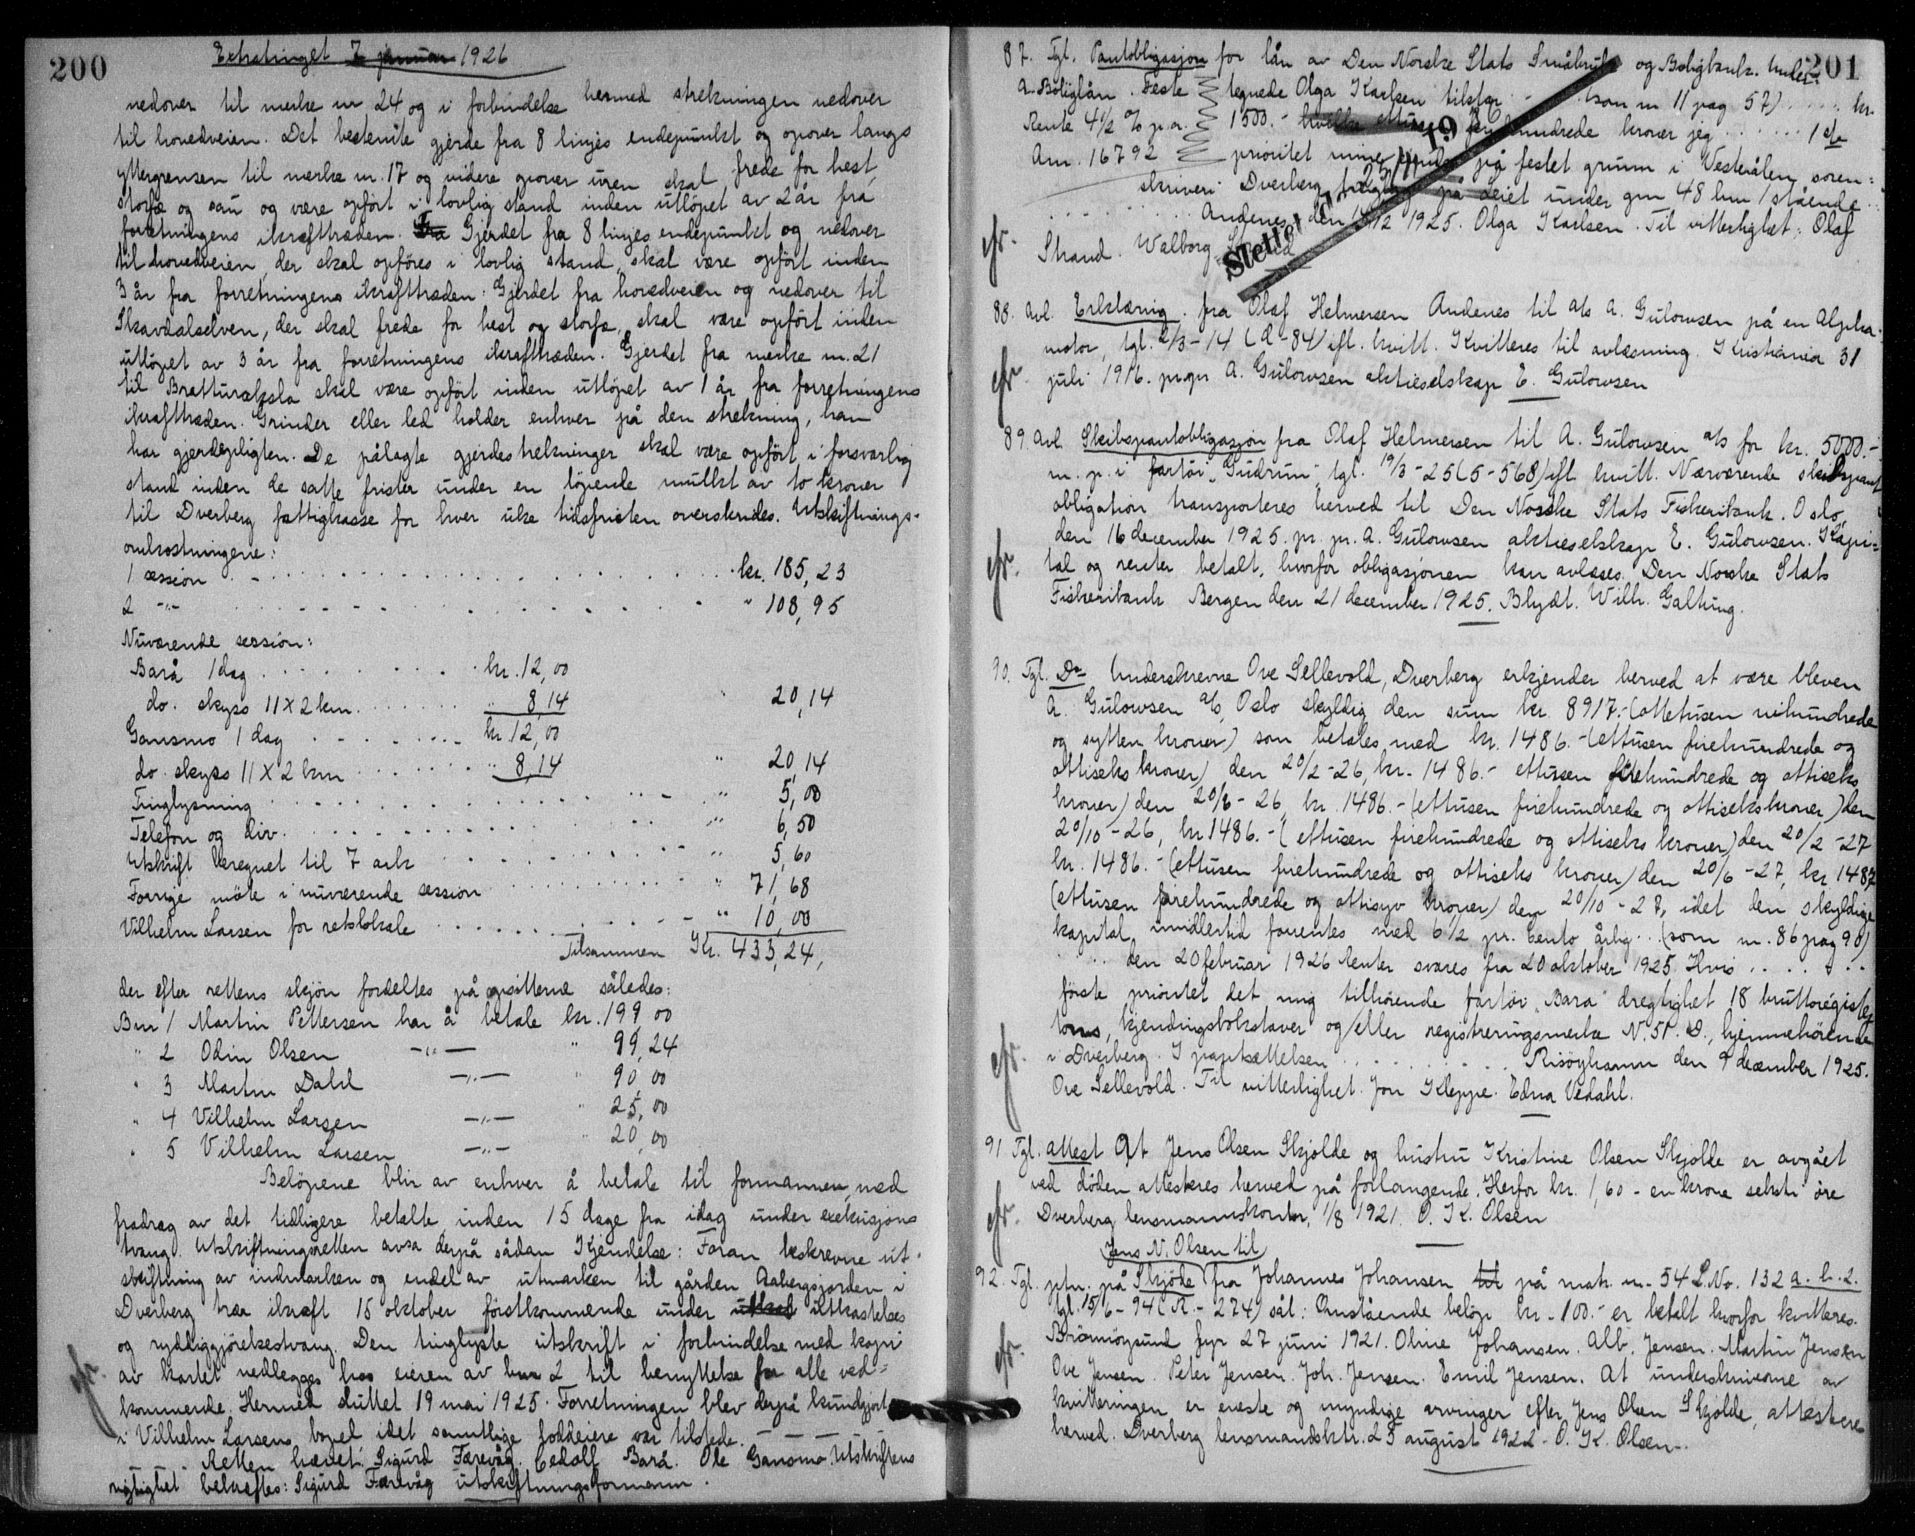 200
Extratinget 7 januar 1926
nedover til merke nr 24 og i forbindelse hermed strekningen nedover
til hovedveien. Det bestemte gjerde fra 8 linjes endepunkt og opover langs
yttergrensen til merke nr. 17 og videre opover uren skal frede for hest,
storfæ og sau og være opført i lovlig stand inden utløpet av 2 år fra
foretningens ikrafttræden. Fra Gjerdet fra 8 linjes endepunkt og nedover
til hovedveien, der skal opføres i lovlig stand, skal være opført inden
3 år fra forretningens ikrafttræden. Gjerdet fra hovedveien og nedover til
Skavdalselven, der skal frede for hest og storfæ, skal være opført inden
utløpet av 3 år fra forretningens ikrafttræden. Gjerdet fra merke nr. 21
til Bratturaksla skal være opført inden utløpet av 1 år fra forretningens
ikrafttræden. Grinder eller led holder enhver på den strekning, han
har gjerdepligten. De pålagte gjerdestrekninger skal være opført i forsvarlig
stand inden de satte frister under en løpende mulkt av to kroner
til Dverberg fattigkasse for hver uke tidsfristen overskrides. Utskiftnings-
omkostningene:
1 session . . . kr. 185,23
2 -"- . . . " 108,95
Nuværende session:
Barå 1 dag . . . kr. 12,00
do. skyss 11 X 2 km. . . . " 8,14 " 20,14
Gansmo 1 dag . . . kr. 12,00
do. skyss 11 X 2 km . . . " 8,14 " 20,14
Tinglysning . . . " 5,00
Telefon og div. . . . " 6,50
Utskrift beregnet til 7 ark . . . " 5,60
Forrige møte i nuværende session . . . " 71,68
Vilhelm Larsen for retslokale . . . " 10,00
Tilsammen Kr. 433,24,
der efter rettens skjøn fordeltes på opsitterne således:
Bnr 1 Martin Pettersen har å betale kr. 199 00
" 2 Odin Olsen -"- " 99,24
" 3 Martin Dahl -"- " 90,00
" 4 Vilhelm Larsen -"- " 25,00
" 5 Vilhelm Larsen -"- " 20,00
Beløpene blir av enhver å betale til formannen, med
fradrag av det tidligere betalte, inden 15 dage fra idag under exekusjons
tvang. Utskiftningsretten avsa derpå sådan Kjendelse: Foran beskrevne ut-
skiftning av indmarken og endel av utmarken til gården Aabergsjorden i
Dverberg træ ikraft 15 oktober førstkommende under utkastelses
og ryddiggjørelsestvang. Den tinglyste utskrift i forbindelse med kopi
av kartet nedlegges hos eieren av bnr 2 til benyttelse for alle ved-
kommende. Hermed sluttet 19 mai 1925. Forretningen blev derpå kundgjort
i Vilhelm Larsens bopel idet samtlige loddeiere var tilstede.
Retten hævet. Sigurd Færevåg. Edolf Barå. Ole Gansmo. Utskriftens
rigtighet bekreftes: Sigurd Færevåg utskiftningsformann.
201
87. Tgl. Pantobligasjon for lån av Den Norske Stats Småbruk og Boligbank. Under-
A. Boliglån. Feste tegnede Olga Karlsen tilstår . . . (som nr 11 pag 57) . . . kr.
Rente 4 1/2 % p.a. 1500.- femhundrede kroner jeg . . . 1ste
Am. 16792 prioritet mine på festet grunn i Vesterålen soren-
skriveri Dverberg på deiet under gnr 48 bnr 1 stående
Andenes den 1925. Olga Karlsen. Til vitterlighet: Olaf
Strand. Walborg
Slettet 19
88. Avl. Erklæring fra Olaf Helmersen Andenes til a/s A. Gulowsen på en Alpha
motor, tgl. 2/3-14 (A-84) eft. kvitt. Kvitteres til avlæsning. Kristiania 31
juli 1916. pr.pr A. Gulowsen aktieselskap E. Gulowsen
89. Avl. Skibspantobligasjon fra Olaf Helmersen til A. Gulowsen a/s for kr. 5000.-
m. p. i fartøi "Gudrun", tgl. 19/3-25 (5-568) eft. kvitt. Nærværende skibspant
obligation transporteres herved til Den Norske Stats Fiskeribank. Oslo,
den 16 december 1925. pr. pr. A. Gulowsen aktieselskap E. Gulowsen. Kapi-
tal og renter betalt, hvorfor obligasjonen kan avlæses. Den Norske Stats
Fiskeribank Bergen den 21 december 1925. Blydt. Wilh. Galtung.
90. Tgl. Do Underskrevne Ove Sellevold, Dverberg erkjender herved at være bleven
A. Gulowsen a/s, Oslo skyldig den sum kr. 8917.- (ottetusen nihundrede
og sytten kroner) som betales med kr. 1486.- (ettusen firehundrede og
ottiseks kroner) den 20/2-26, kr. 1486.- ettusen firehundrede og ottiseks
kroner) den 20/6-26, kr. 1486.- (ettusen firehundrede og ottisekskroner) den
20/10-26, kr 1486.- (ettusen firehundrede og ottiseks kroner) den 20/2-27
kr. 1486.- (ettusen firehundrede og ottiseks kroner) den 20/6-27, kr. 1487
(ettusen firehundrede og ottisyv kroner) den 20/10-27, idet den skyldige
kapital imidlertid forrentes med 6 1/2 pr. cento årlig . . . (som nr. 86 pag 98)
. . . den 20 februar 1926 renter svares fra 20 oktober 1925. Hvis . . .
første prioritet det mig tilhørende fartøi "Bara" drægtighet 18 bruttoregister
tons, kjendingsbokstaver og/eller registreringsmerke N. 51. D., hjemmehørende
i Dverberg. I pantsettelsen . . . Risøyhamn den 9 december 1925.
Ove Sellevold. Til vitterlighet: Jon Kleppe. Edna Vedahl.
91 Tgl. Attest At Jens Olsen Skjolde og hustru Kristine Olsen Skjolde er avgået
ved døden attesteres herved på forlangende. Herfor kr. 1,60 - en krone seksti øre
Dverberg lensmannskontor, 1/8 1921. O. K. Olsen
Jens N. Olsen til
92. Tgl. ptn. på Skjøde fra Johannes Johansen til på matr. nr. 54 L.No. 132 a. b. 2.
tgl. 15/6-94 (R.-274) sål: Omstående beløp kr. 100.- er betalt hvorfor kvitteres.
Brönnöysund fyr 27 juni 1921. Oline Johansen. Alb. Jensen. Martin Jensen
Ove Jensen. Peter Jensen. Joh. Jensen. Emil Jensen. At underskriverne av
kvitteringen er eneste og myndige arvinger efter Jens Olsen Skjolde, attesteres
herved. Dverberg lensmandsktr. 25 august 1922. O. K. Olsen.